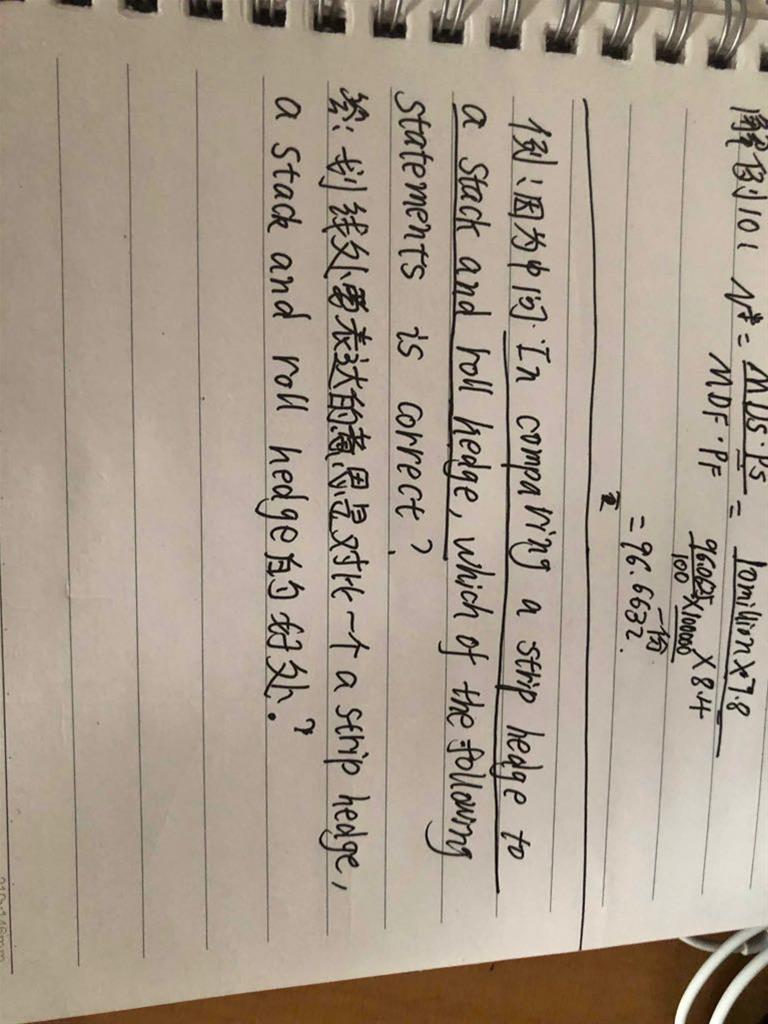 解 例10: N* = MDs·Ps / MDF·PF = 10million×7.8 / 96.0625/100 ×100000 ×8.4
一份
= 96.6632.
例:因为中间. In comparing a strip hedge to
a stack and roll hedge, which of the following
statements is correct?
答: 划线处要表达的意思是对比一个 a strip hedge,
a stack and roll hedge的好处.?
210×148mm